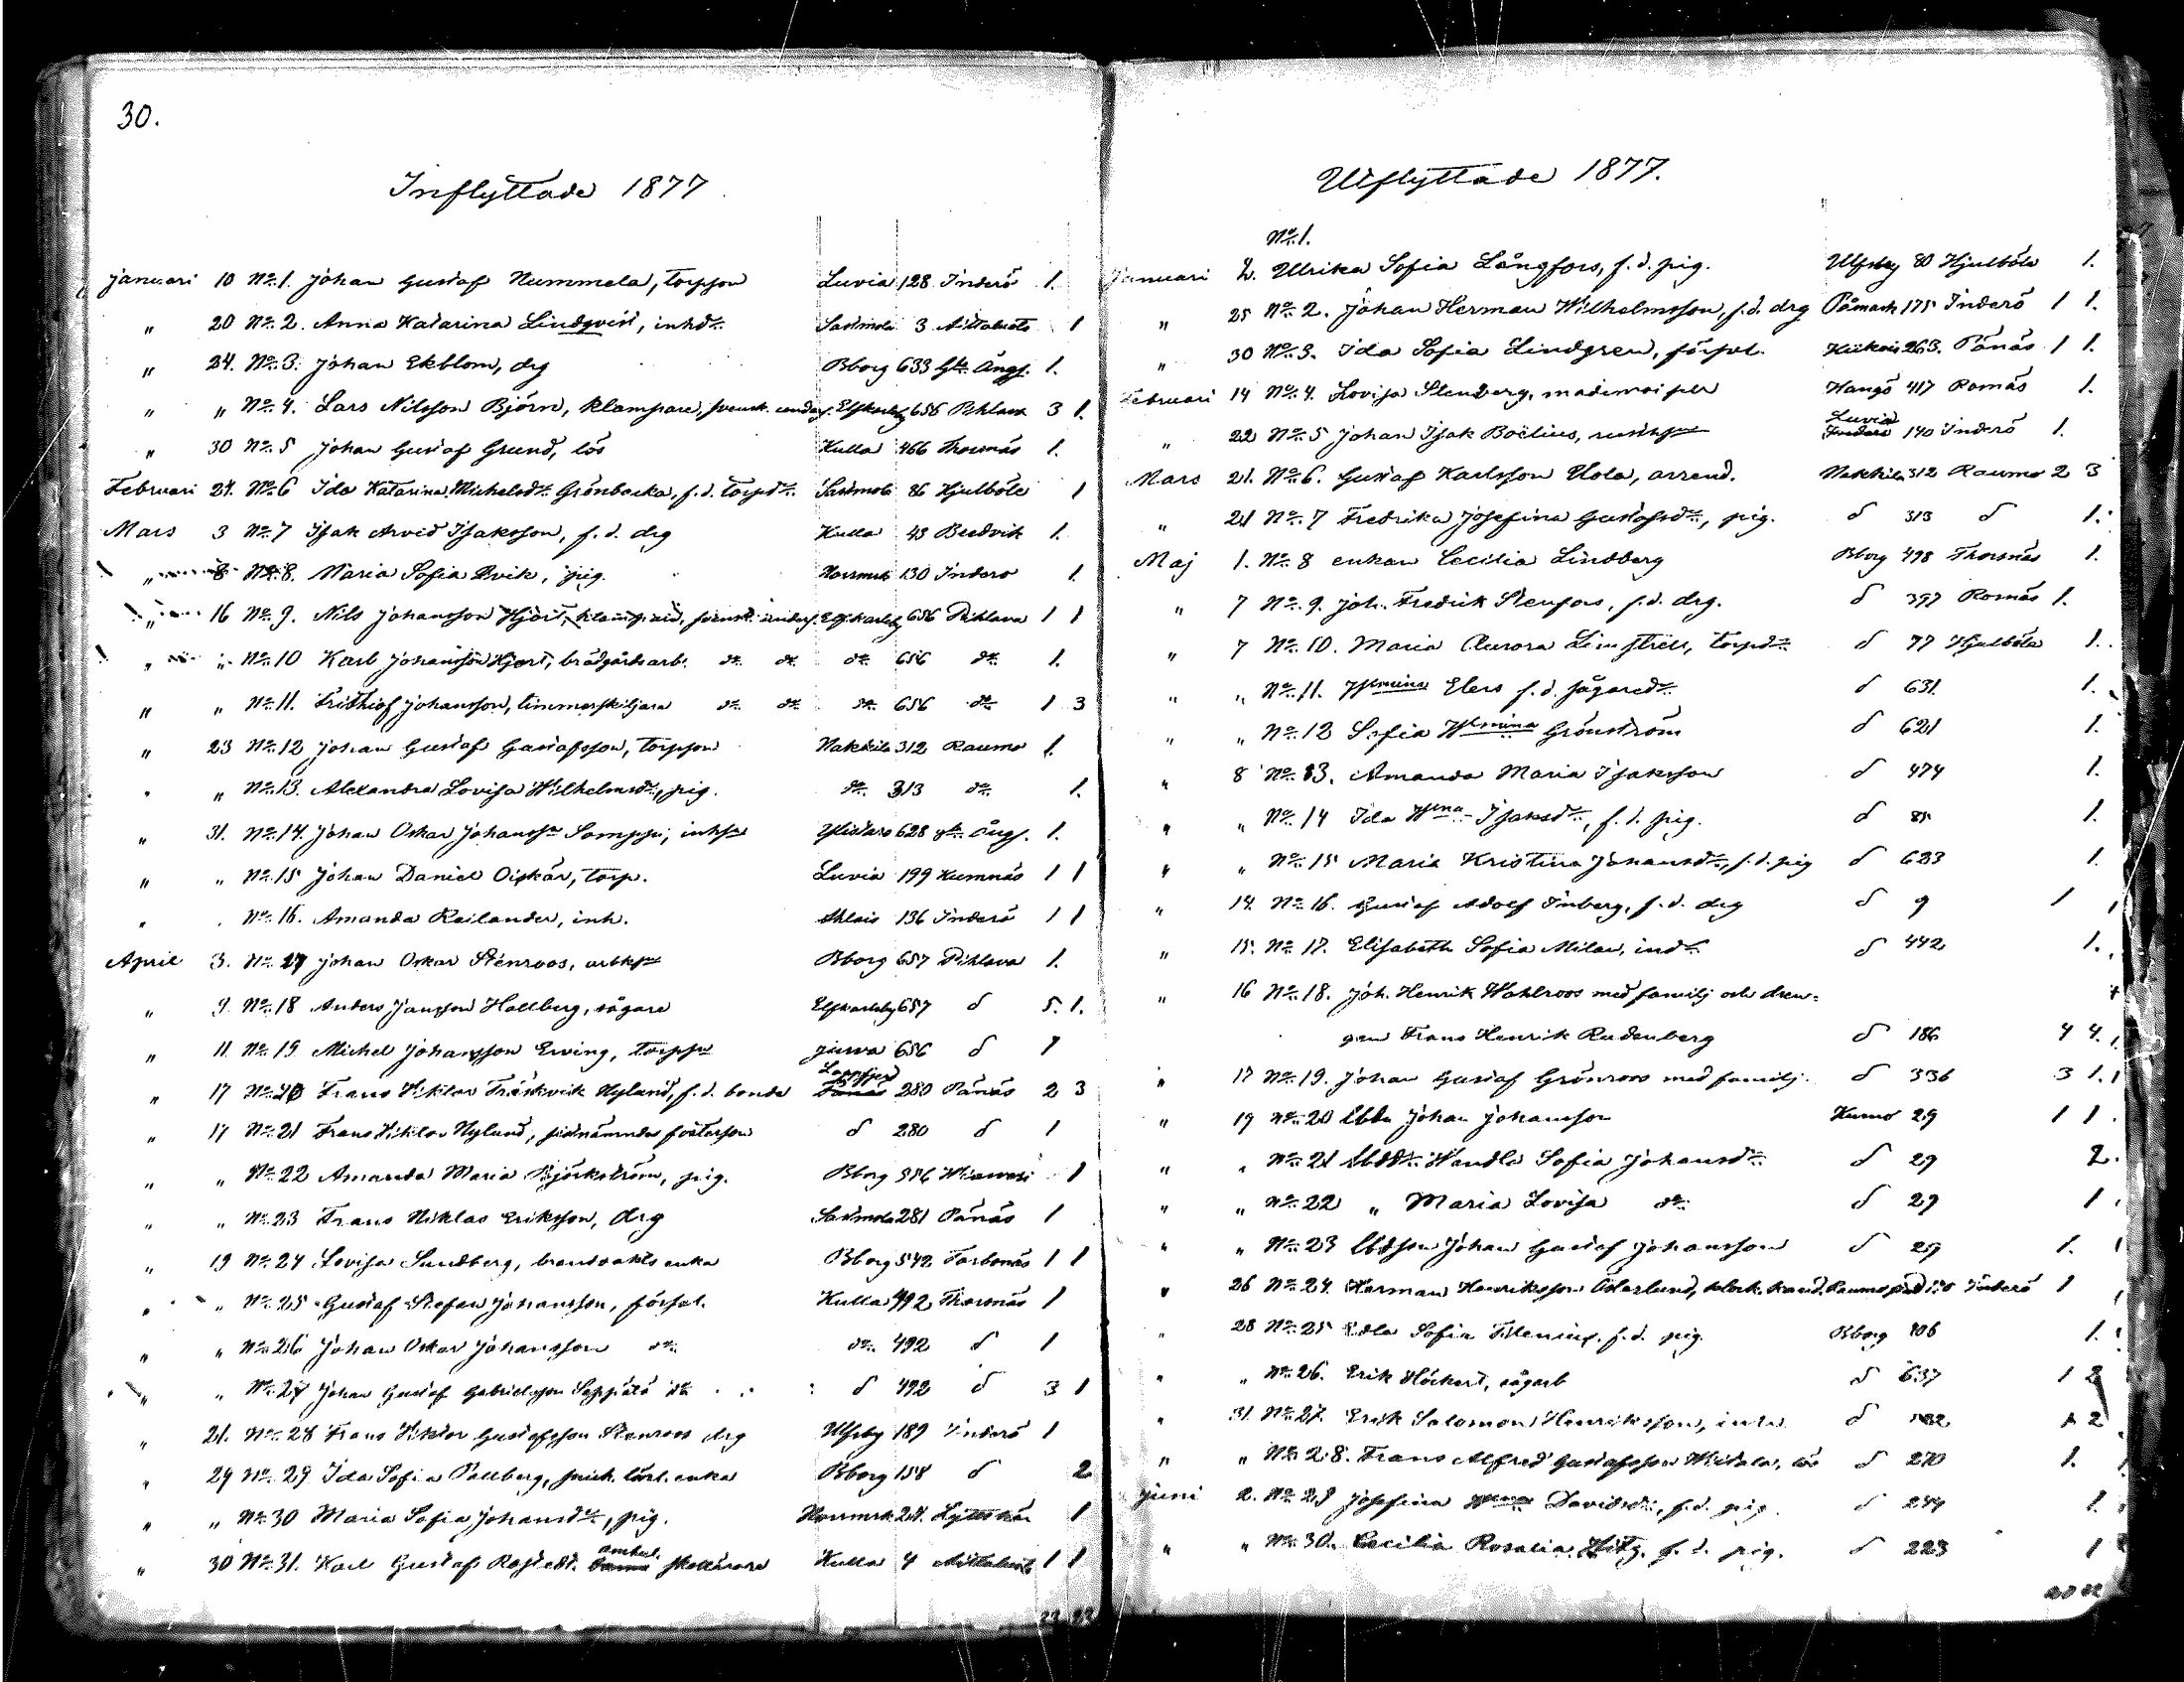 30.
Inflyttade 1877
Januari 10 No 1. Johan Gustaf Nummela, torpson Luvia 128 Inderö 1.
" 20 No 2. Anna Katarina Lindqvist, inhdr Sastmola 3 1
" 24. No 3. Johan Ekblom, drg Bborg 633 Gla Ängs. 1.
" " No 4. Lars Nilsson Björn, klampare, svensk unders. Elfkarleby 656 Pihlava 3 1.
" 30 No 5 Johan Gustaf Grund, lös Kulla 466 Thorsnäs 1.
Februari 24. No 6 Ida Katarina Michelsdr Grönbacka, f.d. torpdr Sastmola 86 Hjulböle 1
Mars 3 No 7 Isak Arvid Isaksson, f.d. drg Kulla 43 Bredvik 1.
" 8 No 8. Maria Sofia Qvik, pig. Norrmrk 130 Inderö 1.
" 16 No 9. Nils Johansson Hjort, klampare, svensk unders. Elfkarleby 656 Pihlava 1 1
" " No 10 Karl Johansson Hjort, brädgårdsarb. do do do 656 do 1.
" " No 11. Frithiof Johansson, timmerskiljare do do do 656 do 1 3
" 23 No 12 Johan Gustaf Gustafsson, torpson Nakkila 312 Raumo 1.
" " No 13. Alexandra Lovisa Wilhelmsdr, pig. do 313 do 1.
" 31. No 14. Johan Oskar Johanss. Samppi, inhsn Ylistaro 628 gla Ängs. 1.
" " No 15 Johan Daniel Oiskär, torp. Luvia 199 Kumnäs 1 1
" " No 16. Amanda Kailander, inh. Ahlais 136 Inderö 1 1
April 3. No 17 Johan Oskar Stenroos, arbksn Bborg 657 Pihlava 1.
" 9. No 18 Anders Jansson Hallberg, sågare Elfkarleby 657 d 5. 1.
" 11 No 19 Michel Johansson Erving, torpsn Jurva 656 d 1
" 17 No 20 Frans Viktor Träskvik Nylund, f.d. bonde Lappfjerd 280 Pänäs 2 3
" 17 No 21 Frans Viktor Nylund, sistnämndes fosterson d 280 d 1
" " No 22 Amanda Maria Björkström, pig. Bborg 356 1
" " No 23 Frans Niklas Eriksson, drg Sastmola 281 Pänäs 1
" 19 No 24 Lovisa Sundberg, brandvakts enka Bborg 542 Torbonäs 1 1
" " No 25 Gustaf Stefan Johansson, förpal. Kulla 492 Thorsnäs 1
" " No 26 Johan Oskar Johansson do do 492 d 1
" " No 27 Johan Gustaf Gabrielsson Seppälä do d 492 d 3 1
" 21. No 28 Frans Viktor Gustafsson Stenroos drg Ulfsby 189 Inderö 1
" 24 No 29 Ida Sofia Pallberg, snick. lärl. enka Bborg 158 d 2
" " No 30 Maria Sofia Johansdr, pig. Norrmrk 24. Lyttskär 1
" 30 No 31. Karl Gustaf Rostedt. ambul. skollärare Kulla 4 1 1
22 22
Utflyttade 1877.
No 1.
Januari 2. Ulrika Sofia Långfors, f.d. pig. Ulfsby 80 Hjulböle 1.
" 25 No 2. Johan Herman Wilhelmsson, f.d. drg Påmark 175 Inderö 1 1.
" 30 No 3. Ida Sofia Lindgren, förpal. Kiikois 263. Pänäs 1 1.
Februari 14 No 4. Lovisa Stenberg, mademoiselle Hangö 417 Romäs 1.
" 22 No 5 Johan Isak Boëlius, rusthsn Luvia 140 Inderö 1.
Mars 21. No 6. Gustaf Karlsson Uola, arrend. Nakkila 312 Raumo 2 3
" 21 No 7 Fredrika Josefina Gustafsdr, pig. d 313 d 1.
Maj 1. No 8 enkan Cecilia Lindberg Bborg 498 Thorsnäs 1.
" 7 No 9. Joh. Fredrik Stenfors, f.d. drg. d 397 Romäs 1.
" 7 No 10. Maria Aurora Limström, torpdr d 77 Hjulböle 1.
" " No 11. Wilmina Elers f.d. sågaredr d 631 1.
" " No 12 Sofia Wilmina Grönström d 621 1.
" 8 No 13. Amanda Maria Isaksson d 474 1.
" " No 14 Ida Wina Isaksdr, f.d. pig. d 85 1.
" " No 15 Maria Kristina Johansdr, f.d. pig d 623 1.
" 14. No 16. Gustaf Adolf Inberg, f.d. drg d 9 1
" 15. No 17. Elisabeth Sofia Milan, indr d 442 1.
" 16 No 18. Joh. Henrik Wahlroos med familj och dren=
gen Frans Henrik Rudenberg d 186 4 4.
" 17 No 19. Johan Gustaf Grönroos med familj. d 336 3 1.
" 19 No 20 Ebbe Johan Johansson Kumo 29 1 1
" " No 21 Wendla Sofia Johansdr d 29 2.
" " No 22 " Maria Lovisa do d 29 1
" " No 23 Johan Gustaf Johansson d 29 1.
" 26 No 24. Herman Henriksson Österlund, Inderö 1
" 28 No 25 Edla Sofia f.d. pig. Bborg 106 1.
" " No 26. Erik Höckert, sågarb d 637 1 2
" 31. No 27. Erik Salomon Henriksson, inhs. d 2
" " No 28. Frans Alfred Gustafsson lös d 270 1.
Juni 2. No 29 Josefina Wina Davidsdr, f.d. pig. d 244 1.
" " No 30. Cecilia Rosalia Hitz. f.d. pig. d 223 1